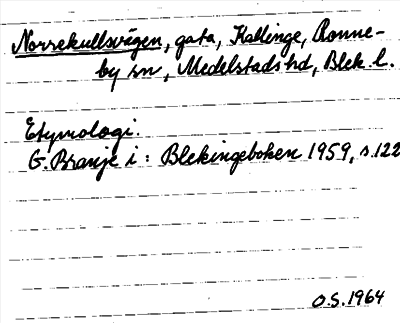 Norrekullsvägen, gata, Kallinge, Ronne-
by sn, Medelstads hd, Blek. l.
Etymologi.
G. Branje i: Blekingeboken 1959, s. 122
O.S. 1964